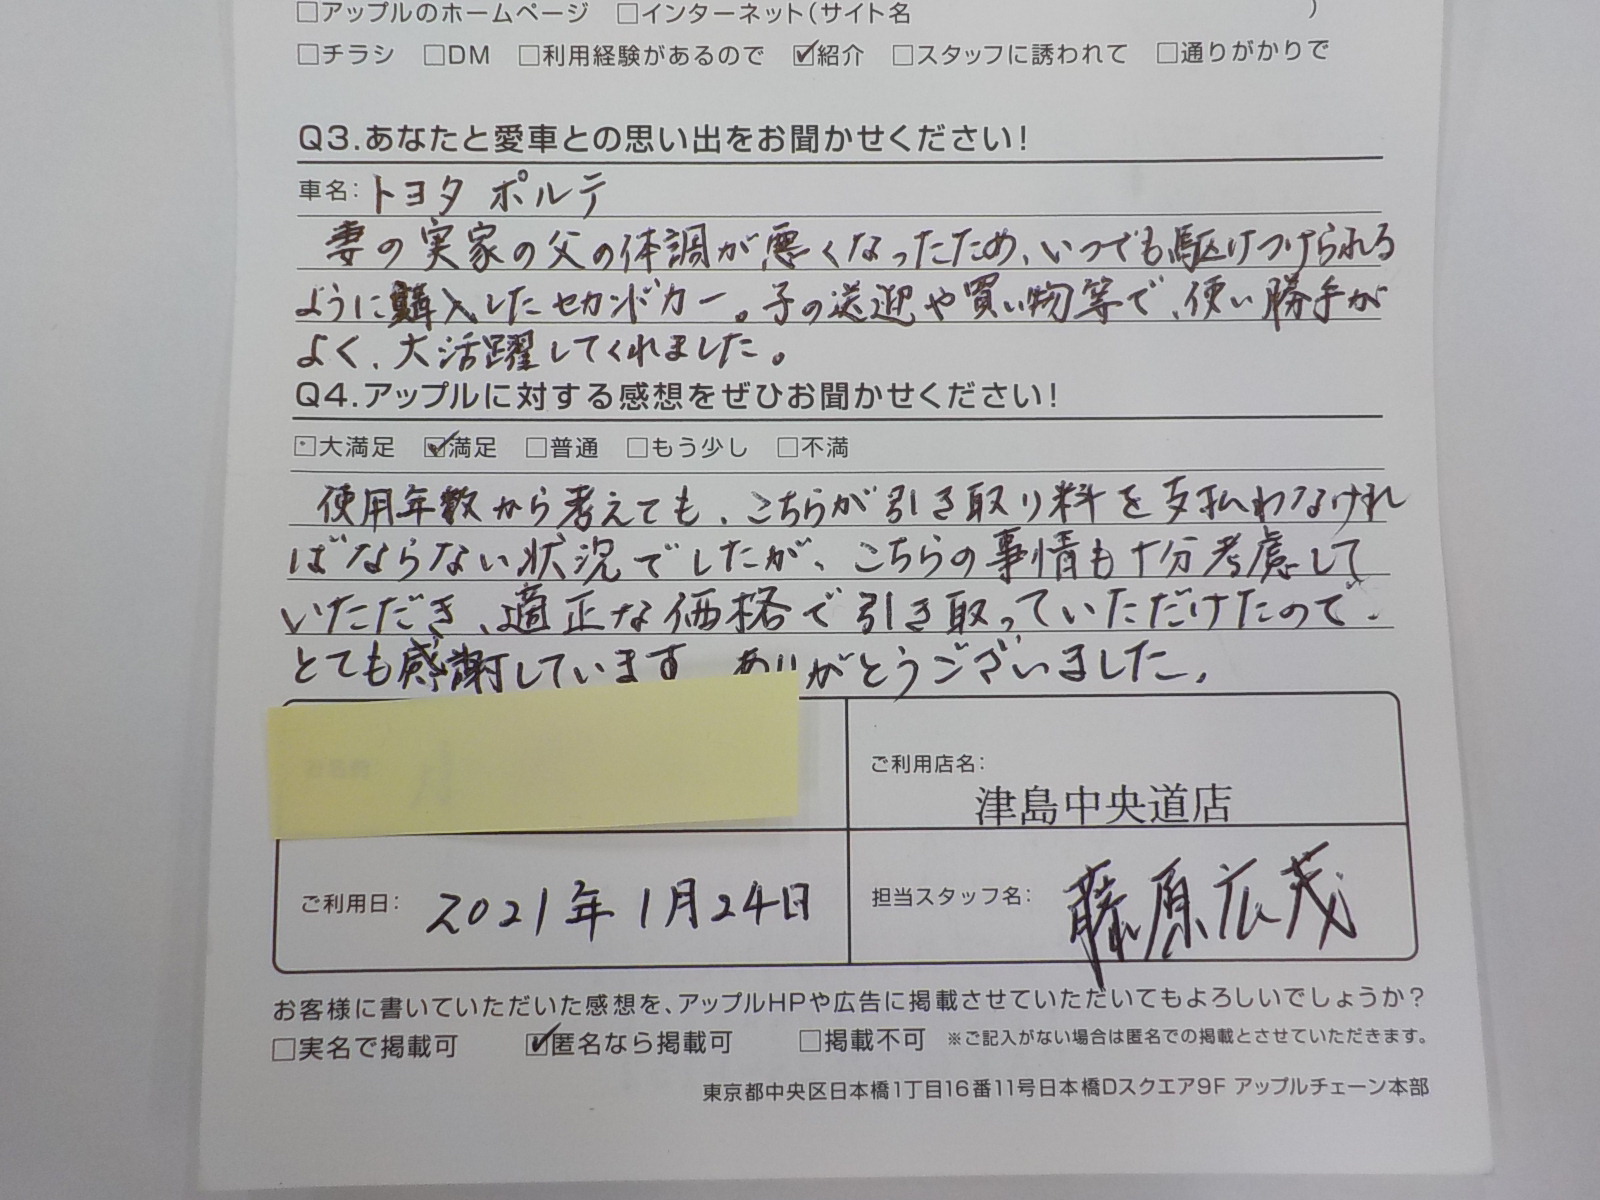 □アップルのホームページ □インターネット(サイト名 )
□チラシ □DM □利用経験があるので ☑紹介 □スタッフに誘われて □通りがかりで
Q3.あなたと愛車との思い出をお聞かせください!
車名:トヨタ ポルテ
妻の実家の父の体調が悪くなったため、いつでも駆けつけられる
ように購入したセカンドカー。子の送迎や買い物等で、使い勝手が
よく、大活躍してくれました。
Q4.アップルに対する感想をぜひお聞かせください!
□大満足 ☑満足 □普通 □もう少し □不満
使用年数から考えても、こちらが引き取り料を支払わなけれ
ばならない状況でしたが、こちらの事情も十分考慮して
いただき、適正な価格で引き取っていただけたので、
とても感謝しています ありがとうございました。
ご利用店名:
津島中央道店
ご利用日: 2021年1月24日
担当スタッフ名: 藤原広茂
お客様に書いていただいた感想を、アップルHPや広告に掲載させていただいてもよろしいでしょうか?
□実名で掲載可 ☑匿名なら掲載可 □掲載不可 ※ご記入がない場合は匿名での掲載とさせていただきます。
東京都中央区日本橋1丁目16番11号日本橋Dスクエア9F アップルチェーン本部